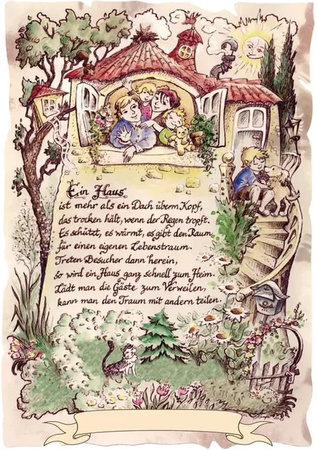 Ein Haus
ist mehr als ein Dach überm Kopf,
das trocken hält, wenn der Regen tropft.
Es schützt, es wärmt, es gibt den Raum
für einen eigenen Lebenstraum.
Treten Besucher dann herein,
so wird ein Haus ganz schnell zum Heim.
Lädt man die Gäste zum Verweilen,
kann man den Traum mit andern teilen.